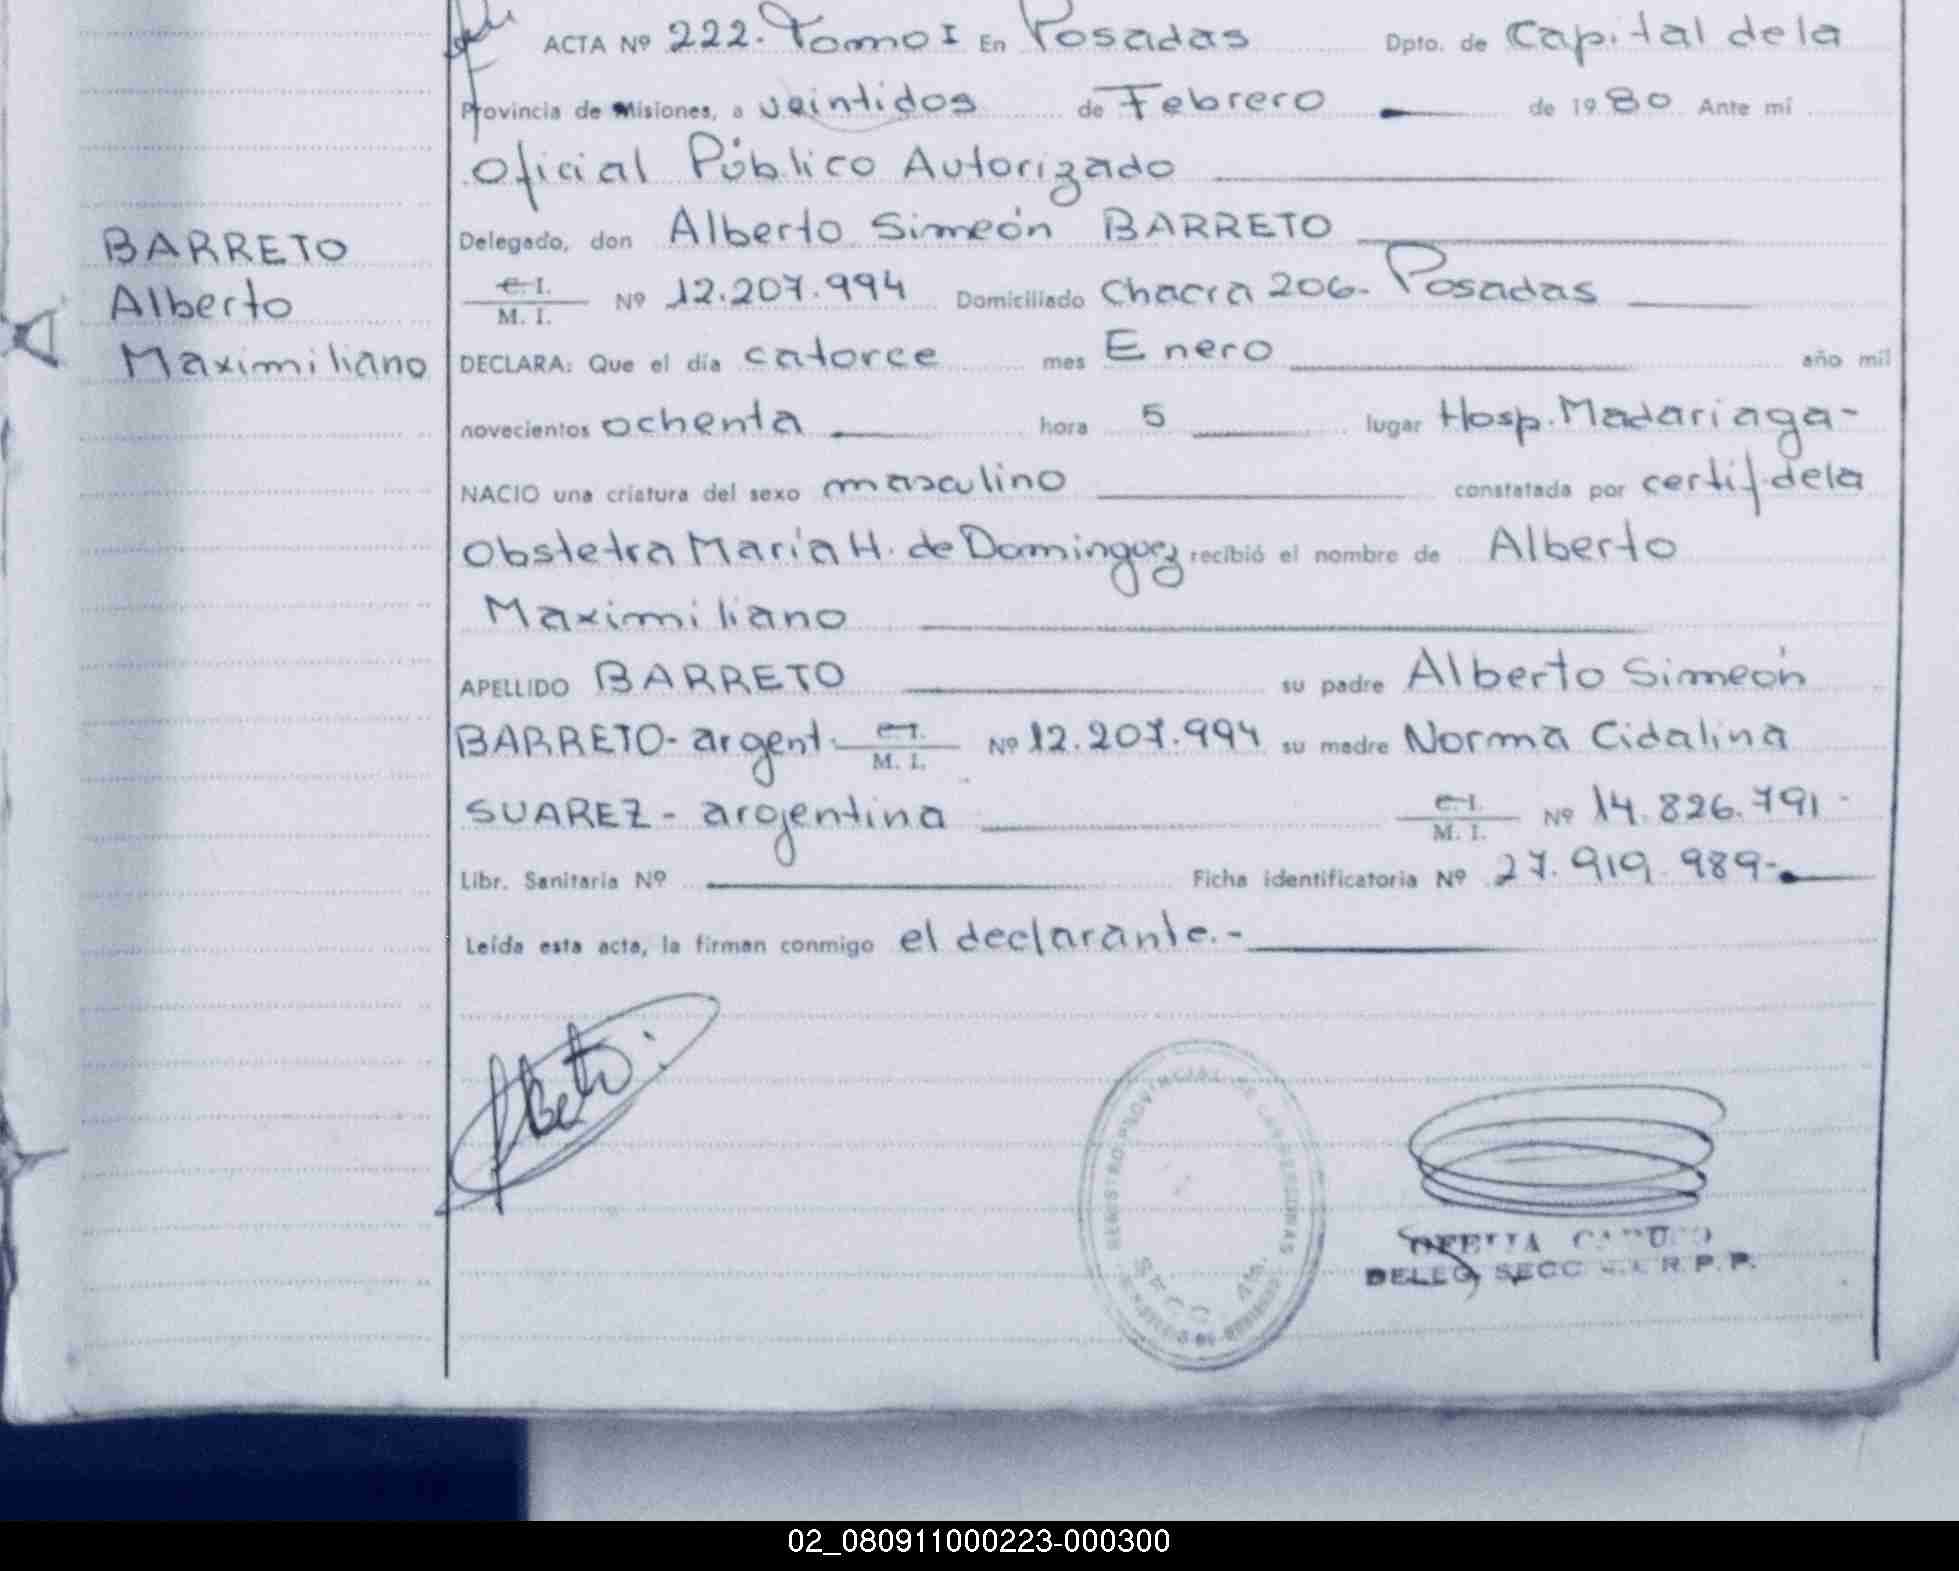 ACTA Nº 222. Tomo I En Posadas Dpto. de Capital de la
Provincia de Misiones, a veintidos de Febrero de 1980 Ante mí
Oficial Público Autorizado
Delegado, don Alberto Simeón BARRETO
C.I. M. I. Nº 12.207.994 Domiciliado Chacra 206- Posadas
BARRETO
Alberto
Maximiliano
DECLARA: Que el día catorce mes Enero año mil
novecientos ochenta hora 5 lugar Hosp. Madariaga-
NACIO una criatura del sexo masculino constatada por certif. de la
Obstetra María H. de Dominguez recibió el nombre de Alberto
Maximiliano
APELLIDO BARRETO su padre Alberto Simeón
BARRETO- argent. C.I. M. I. Nº 12.207.994 su madre Norma Cidalina
SUAREZ- argentina C.I. M. I. Nº 14.826.791-
Libr. Sanitaria Nº Ficha identificatoria Nº 27.919.989-
Leída esta acta, la firman conmigo el declarante.-
REGISTRO PROVINCIAL DE LAS PERSONAS
SECC. 4ta.
OFELIA
DELEG. SECC R.P.P.
02_080911000223-000300